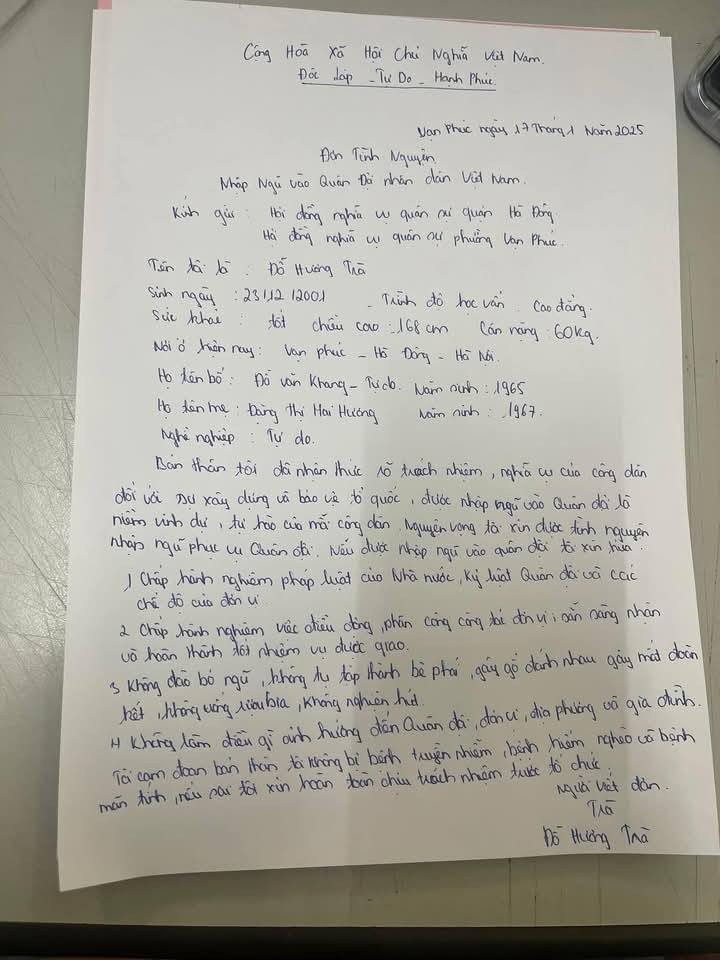 Cộng Hoà Xã Hội Chủ Nghĩa Việt Nam.
Độc lập - Tự Do - Hạnh Phúc.
Vạn Phúc ngày 17 Tháng 1 Năm 2025
Đơn Tình Nguyện
Nhập Ngũ vào Quân Đội nhân dân Việt Nam.
Kính gửi : Hội đồng nghĩa vụ quân sự quận Hà Đông.
Hội đồng nghĩa vụ quân sự phường Vạn Phúc.
Tên tôi là : Đỗ Hương Trà
Sinh ngày : 23/12/2001 - Trình độ học vấn : Cao đẳng.
Sức khoẻ : tốt chiều cao : 168 cm Cân nặng : 60kg.
Nơi ở hiện nay : Vạn phúc - Hà Đông - Hà Nội.
Họ tên bố : Đỗ Văn Khang - Tự do. Năm sinh : 1965
Họ tên mẹ : Đặng Thị Mai Hương Năm sinh : 1967.
Nghề nghiệp : Tự do.
Bản thân tôi đã nhận thức rõ trách nhiệm, nghĩa vụ của công dân
đối với sự xây dựng và bảo vệ tổ quốc, được nhập ngũ vào Quân đội là
niềm vinh dự, tự hào của mỗi công dân. Nguyện vọng tôi xin được tình nguyện
nhập ngũ phục vụ Quân đội. Nếu được nhập ngũ vào quân đội tôi xin hứa :
1 Chấp hành nghiêm pháp luật của Nhà nước, Kỷ luật Quân đội và các
chế độ của đơn vị.
2 Chấp hành nghiêm việc điều động, phân công công tác đơn vị ; sẵn sàng nhận
và hoàn thành tốt nhiệm vụ được giao.
3 Không đào bỏ ngũ, không tụ tập thành bè phái, gây gổ đánh nhau gây mất đoàn
kết, không uống rượu bia, không nghiện hút.
4 Không làm điều gì ảnh hưởng đến Quân đội, đơn vị, địa phương và gia đình.
Tôi cam đoan bản thân tôi không bị bệnh truyền nhiễm, bệnh hiểm nghèo và bệnh
mãn tính, nếu sai tôi xin hoàn toàn chịu trách nhiệm trước tổ chức.
Người viết đơn.
Trà
Đỗ Hương Trà